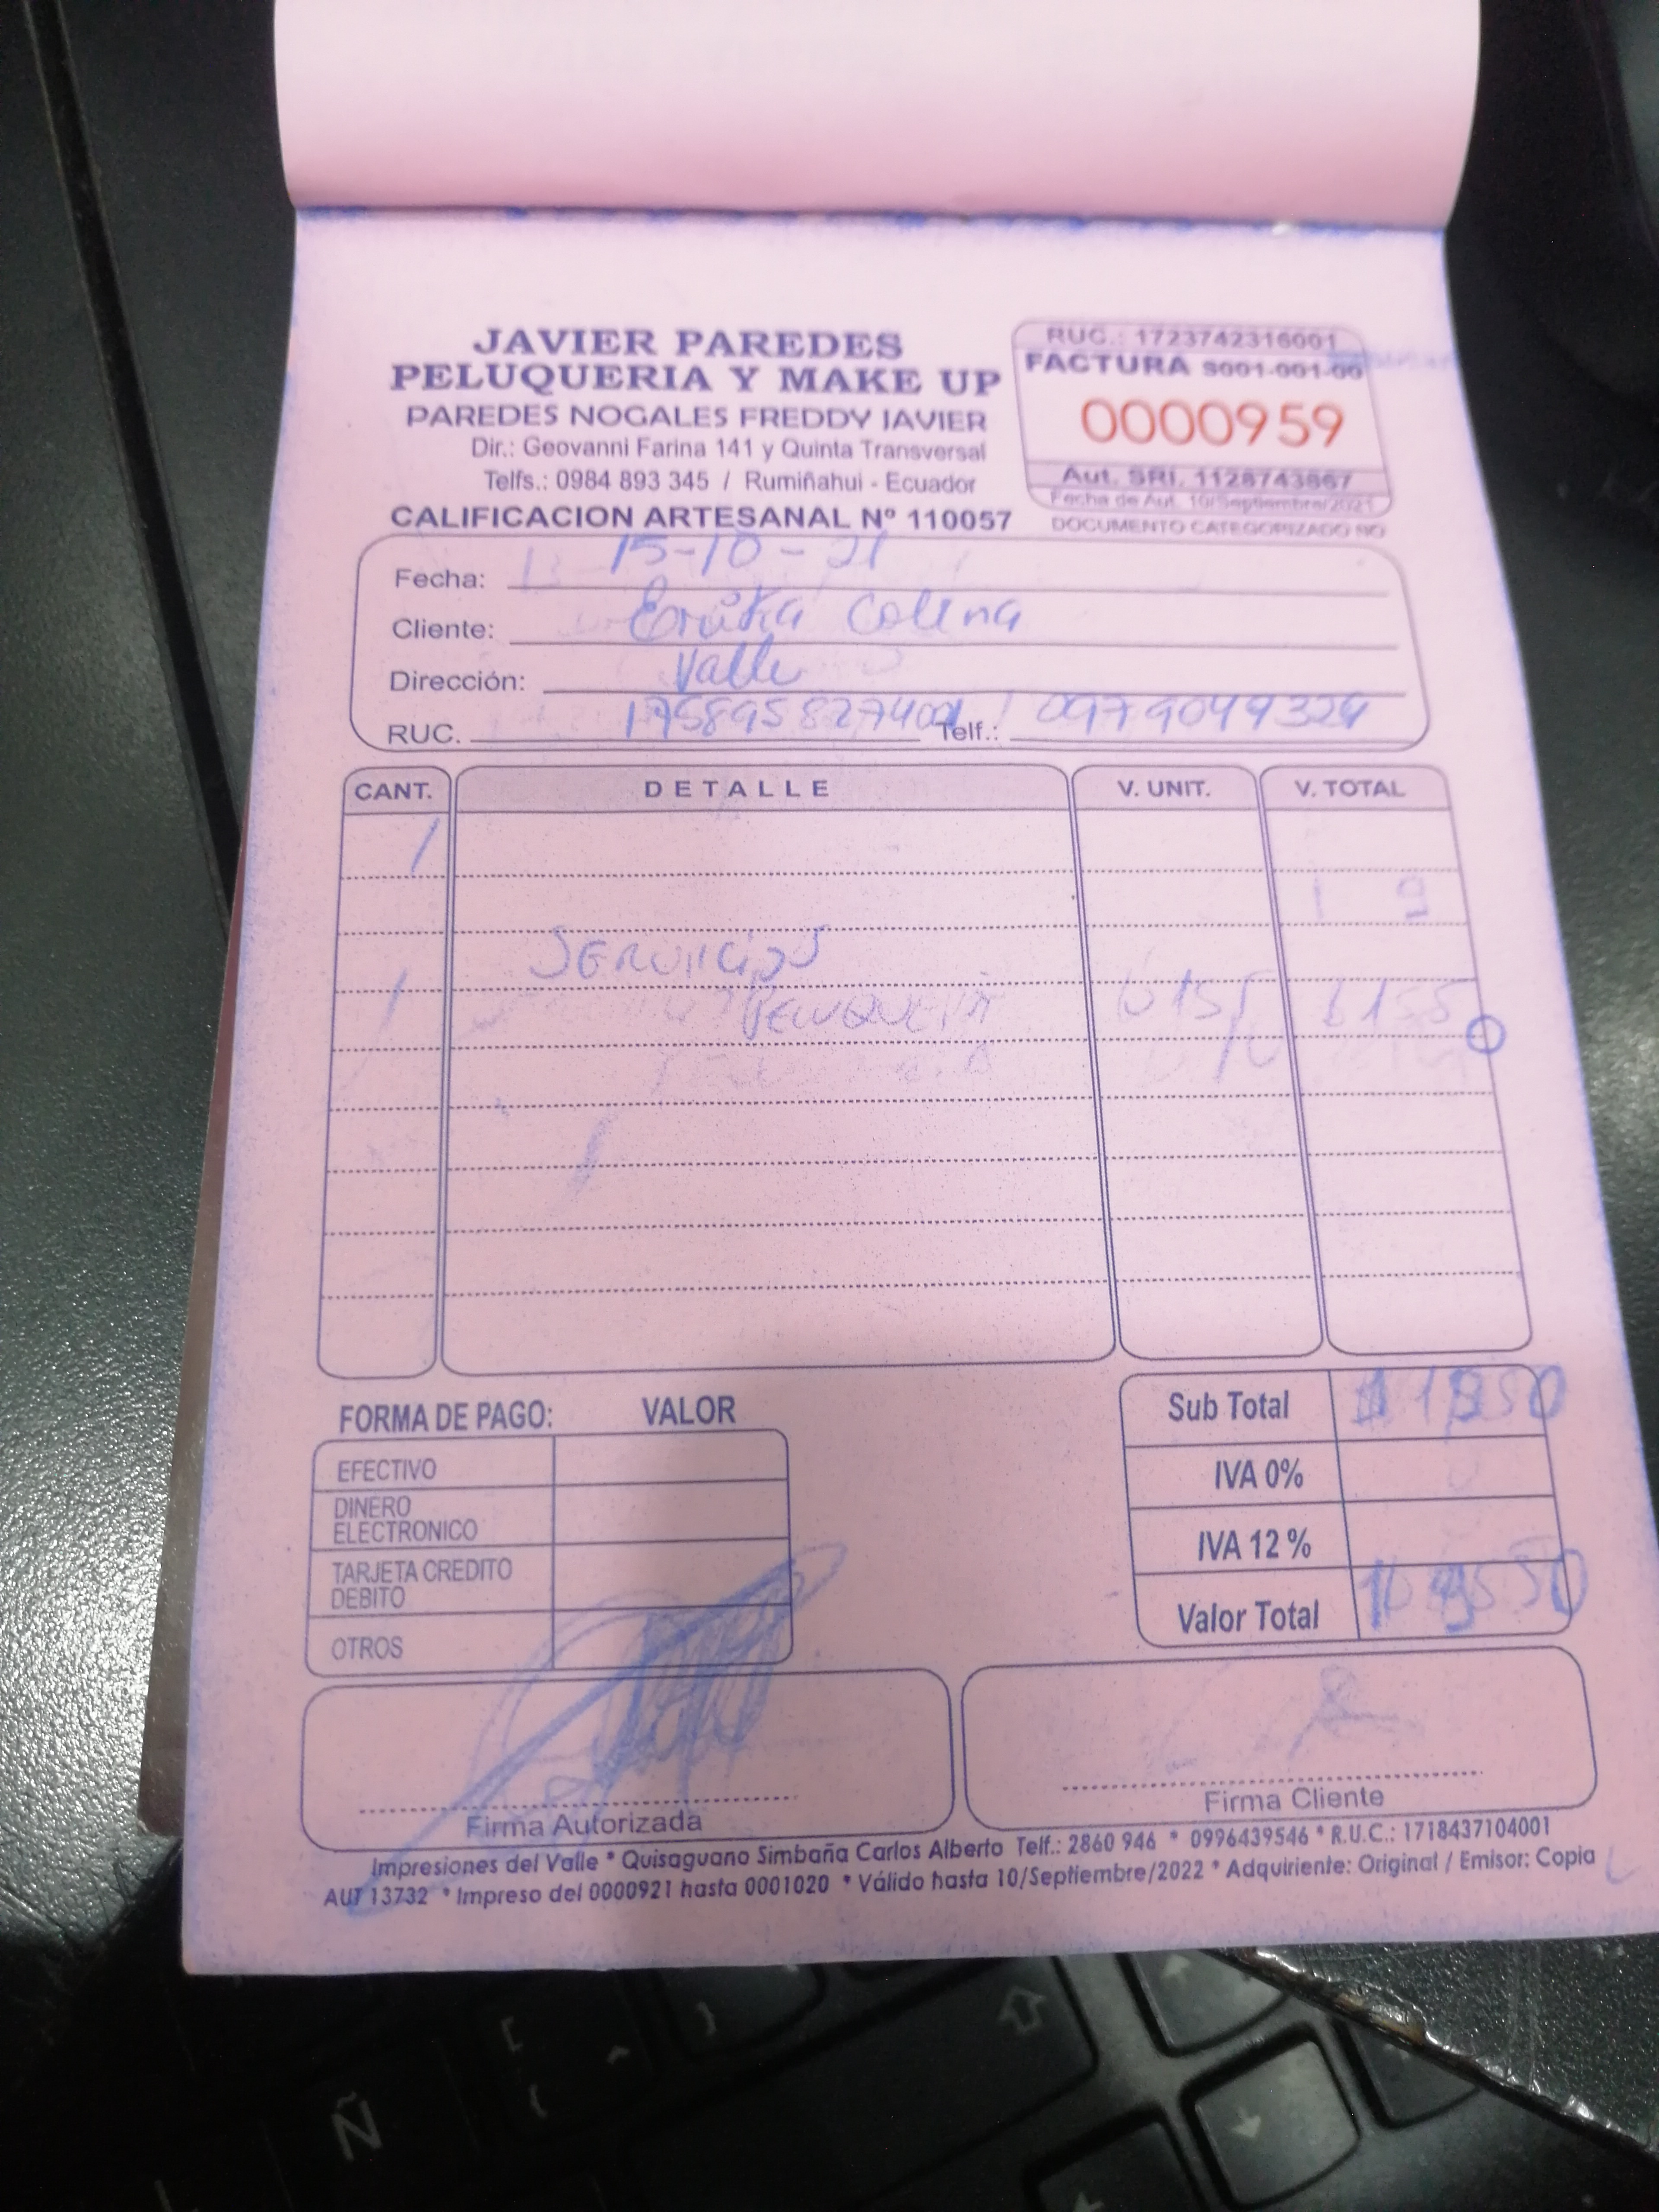 JAVIER PAREDES
PELUQUERIA Y MAKE UP
PAREDES NOGALES FREDDY JAVIER
Dir.: Geovanni Farina 141 y Quinta Transversal
Telfs.: 0984 893 345 / Rumiñahui - Ecuador
CALIFICACION ARTESANAL Nº 110057
RUC.: 1723742316001
FACTURA S001-001-00
0000959
Aut. SRI. 1128743867
Fecha de Aut. 10/Septiembre/2021
DOCUMENTO CATEGORIZADO NO
Fecha: 15-10-21
Cliente: Erika Colina
Dirección: Valle
RUC. 1758958274001 Telf.: 0979049324
CANT. DETALLE V. UNIT. V. TOTAL
1
SERVICIOS
1 PELUQUERIA
FORMA DE PAGO: VALOR
EFECTIVO
DINERO ELECTRONICO
TARJETA CREDITO DEBITO
OTROS
Sub Total
IVA 0%
IVA 12 %
Valor Total
Firma Autorizada
Firma Cliente
Impresiones del Valle * Quisaguano Simbaña Carlos Alberto Telf.: 2860 946 * 0996439546 * R.U.C.: 1718437104001
AUT 13732 * Impreso del 0000921 hasta 0001020 * Válido hasta 10/Septiembre/2022 * Adquiriente: Original / Emisor: Copia
Ñ